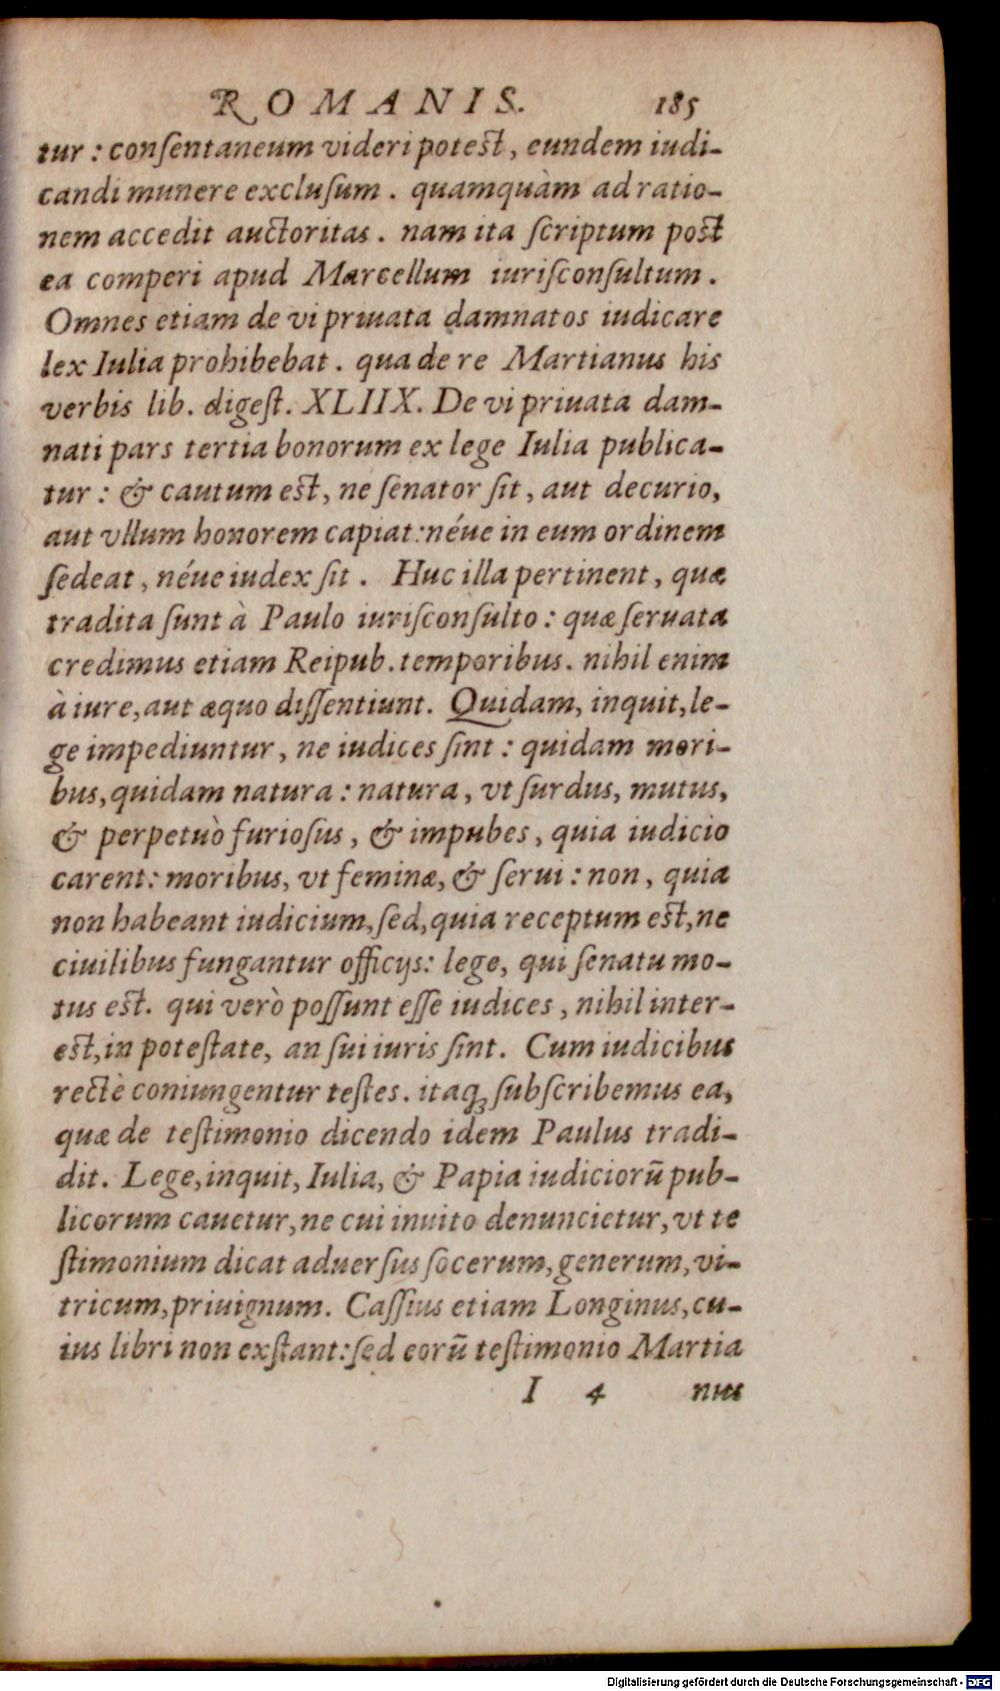 ROMANIS. 185
tur : conſentaneum videri poteſt, eundem iudi-
candi munere excluſum. quamquàm ad ratio-
nem accedit auctoritas. nam ita ſcriptum poſt
ea comperi apud Marcellum iuriſconſultum.
Omnes etiam de vi priuata damnatos iudicare
lex Iulia prohibebat. qua de re Martianus his
verbis lib. digeſt. XLIIX. De vi priuata dam-
nati pars tertia bonorum ex lege Iulia publica-
tur : & cautum eſt, ne ſenator ſit, aut decurio,
aut vllum honorem capiat: néue in eum ordinem
ſedeat, néue iudex ſit. Huc illa pertinent, quæ
tradita ſunt à Paulo iuriſconſulto: quæ ſeruata
credimus etiam Reipub. temporibus. nihil enim
à iure, aut æquo diſſentiunt. Quidam, inquit, le-
ge impediuntur, ne iudices ſint : quidam mori-
bus, quidam natura : natura, vt ſurdus, mutus,
& perpetuò furioſus, & impubes, quia iudicio
carent: moribus, vt feminæ, & ſerui : non, quia
non habeant iudicium, ſed, quia receptum eſt, ne
ciuilibus fungantur officijs: lege, qui ſenatu mo-
tus eſt. qui verò poſſunt eſſe iudices, nihil inter-
eſt, in poteſtate, an ſui iuris ſint. Cum iudicibus
rectè coniungentur teſtes. itaq; ſubſcribemus ea,
quæ de teſtimonio dicendo idem Paulus tradi-
dit. Lege, inquit, Iulia, & Papia iudiciorũ pub-
licorum cauetur, ne cui inuito denuncietur, vt te
ſtimonium dicat aduerſus ſocerum, generum, vi-
tricum, priuignum. Caſſius etiam Longinus, cu-
ius libri non exſtant: ſed eorũ teſtimonio Martia
I 4 nus
Digitalisierung gefördert durch die Deutsche Forschungsgemeinschaft - DFG